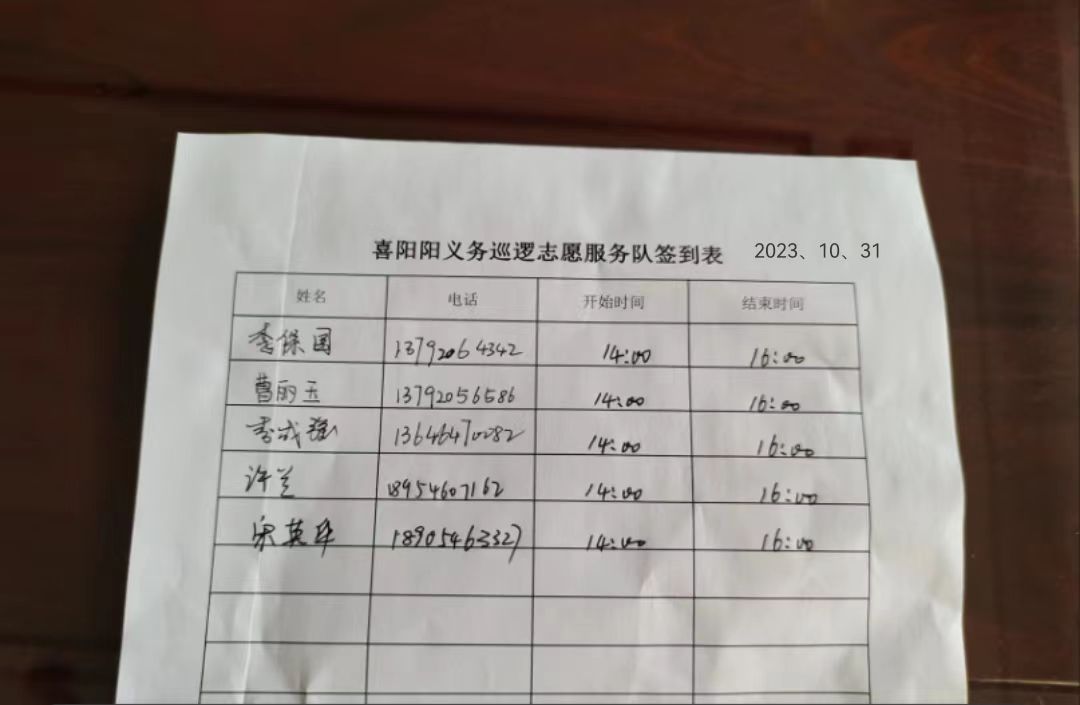 喜阳阳义务巡逻志愿服务队签到表 2023、10、31
姓名 电话 开始时间 结束时间
李保国 13792064342 14:00 16:00
曹丽玉 13792056586 14:00 16:00
李成强 13646470082 14:00 16:00
许兰 18954607162 14:00 16:00
宋英华 18905463327 14:00 16:00